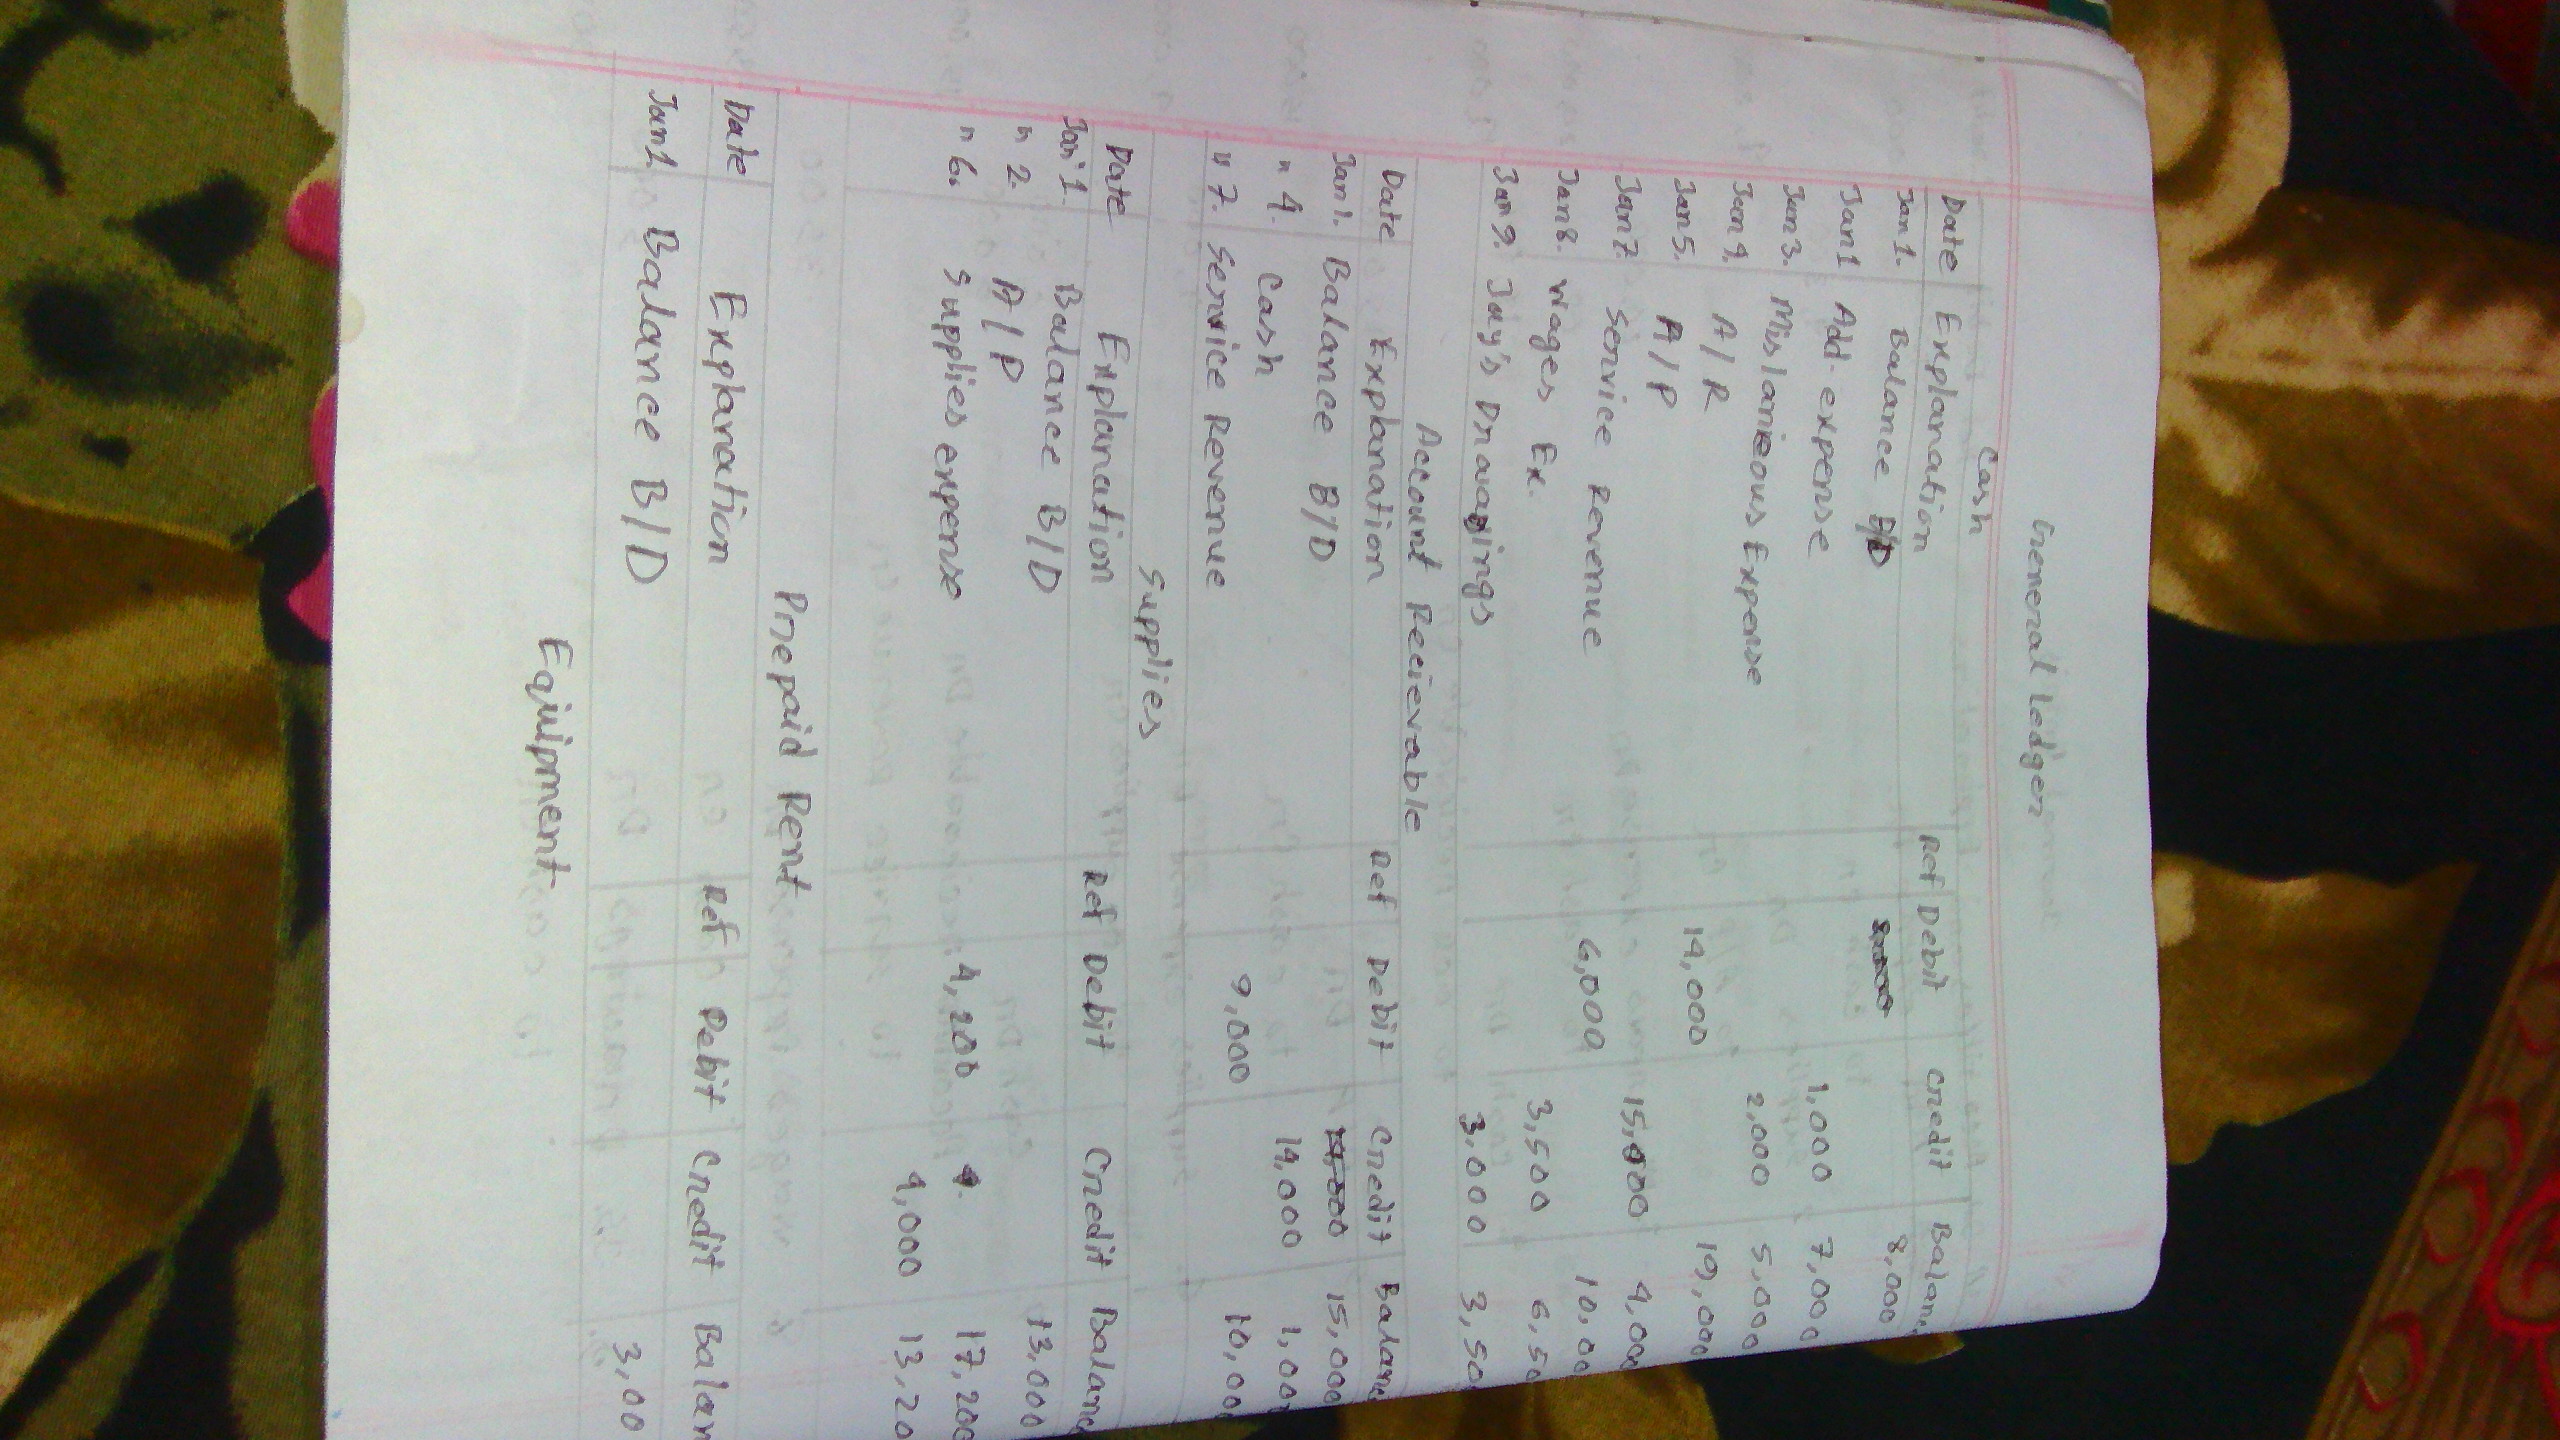 General Ledger
Cash
Date Explanation Ref Debit Credit Balan
Jan 1. Balance B/D 8,000
Jan 1 Add. expense 1,000 7,000
Jan 3. Mislanieous Expense 2,000 5,000
Jan 4. A/R 14,000 19,000
Jan 5. A/P 15,000 4,000
Jan 7. Service Revenue 6,000 10,00
Jan 8. Wages Ex. 3,500 6,50
Jan 9. Jay's Drawings 3,000 3,50
Account Recievable
Date Explanation Ref Debit Credit Balanc
Jan 1. Balance B/D 15,000
" 4. Cash 14,000 1,00
" 7. Service Revenue 9,000 10,00
Supplies
Date Explanation Ref Debit Credit Balanc
Jan 1. Balance B/D 13,000
" 2. A/P 4,200 17,200
" 6. Supplies expense 4,000 13,20
Prepaid Rent
Date Explanation Ref Debit Credit Balan
Jan 1 Balance B/D 3,00
Equipment